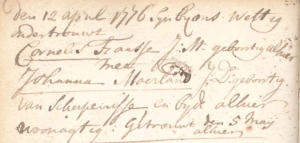 den 12 april 1776 Syn by ons Wettig
ondertrouwt
Cornelis Fraasse J: M: geboortig alhier
met
Johanna Moerland J: D: geboortig
van Scherpenisse En byde alhier
woonagtig: Getrouwt den 5 Maij
alhier